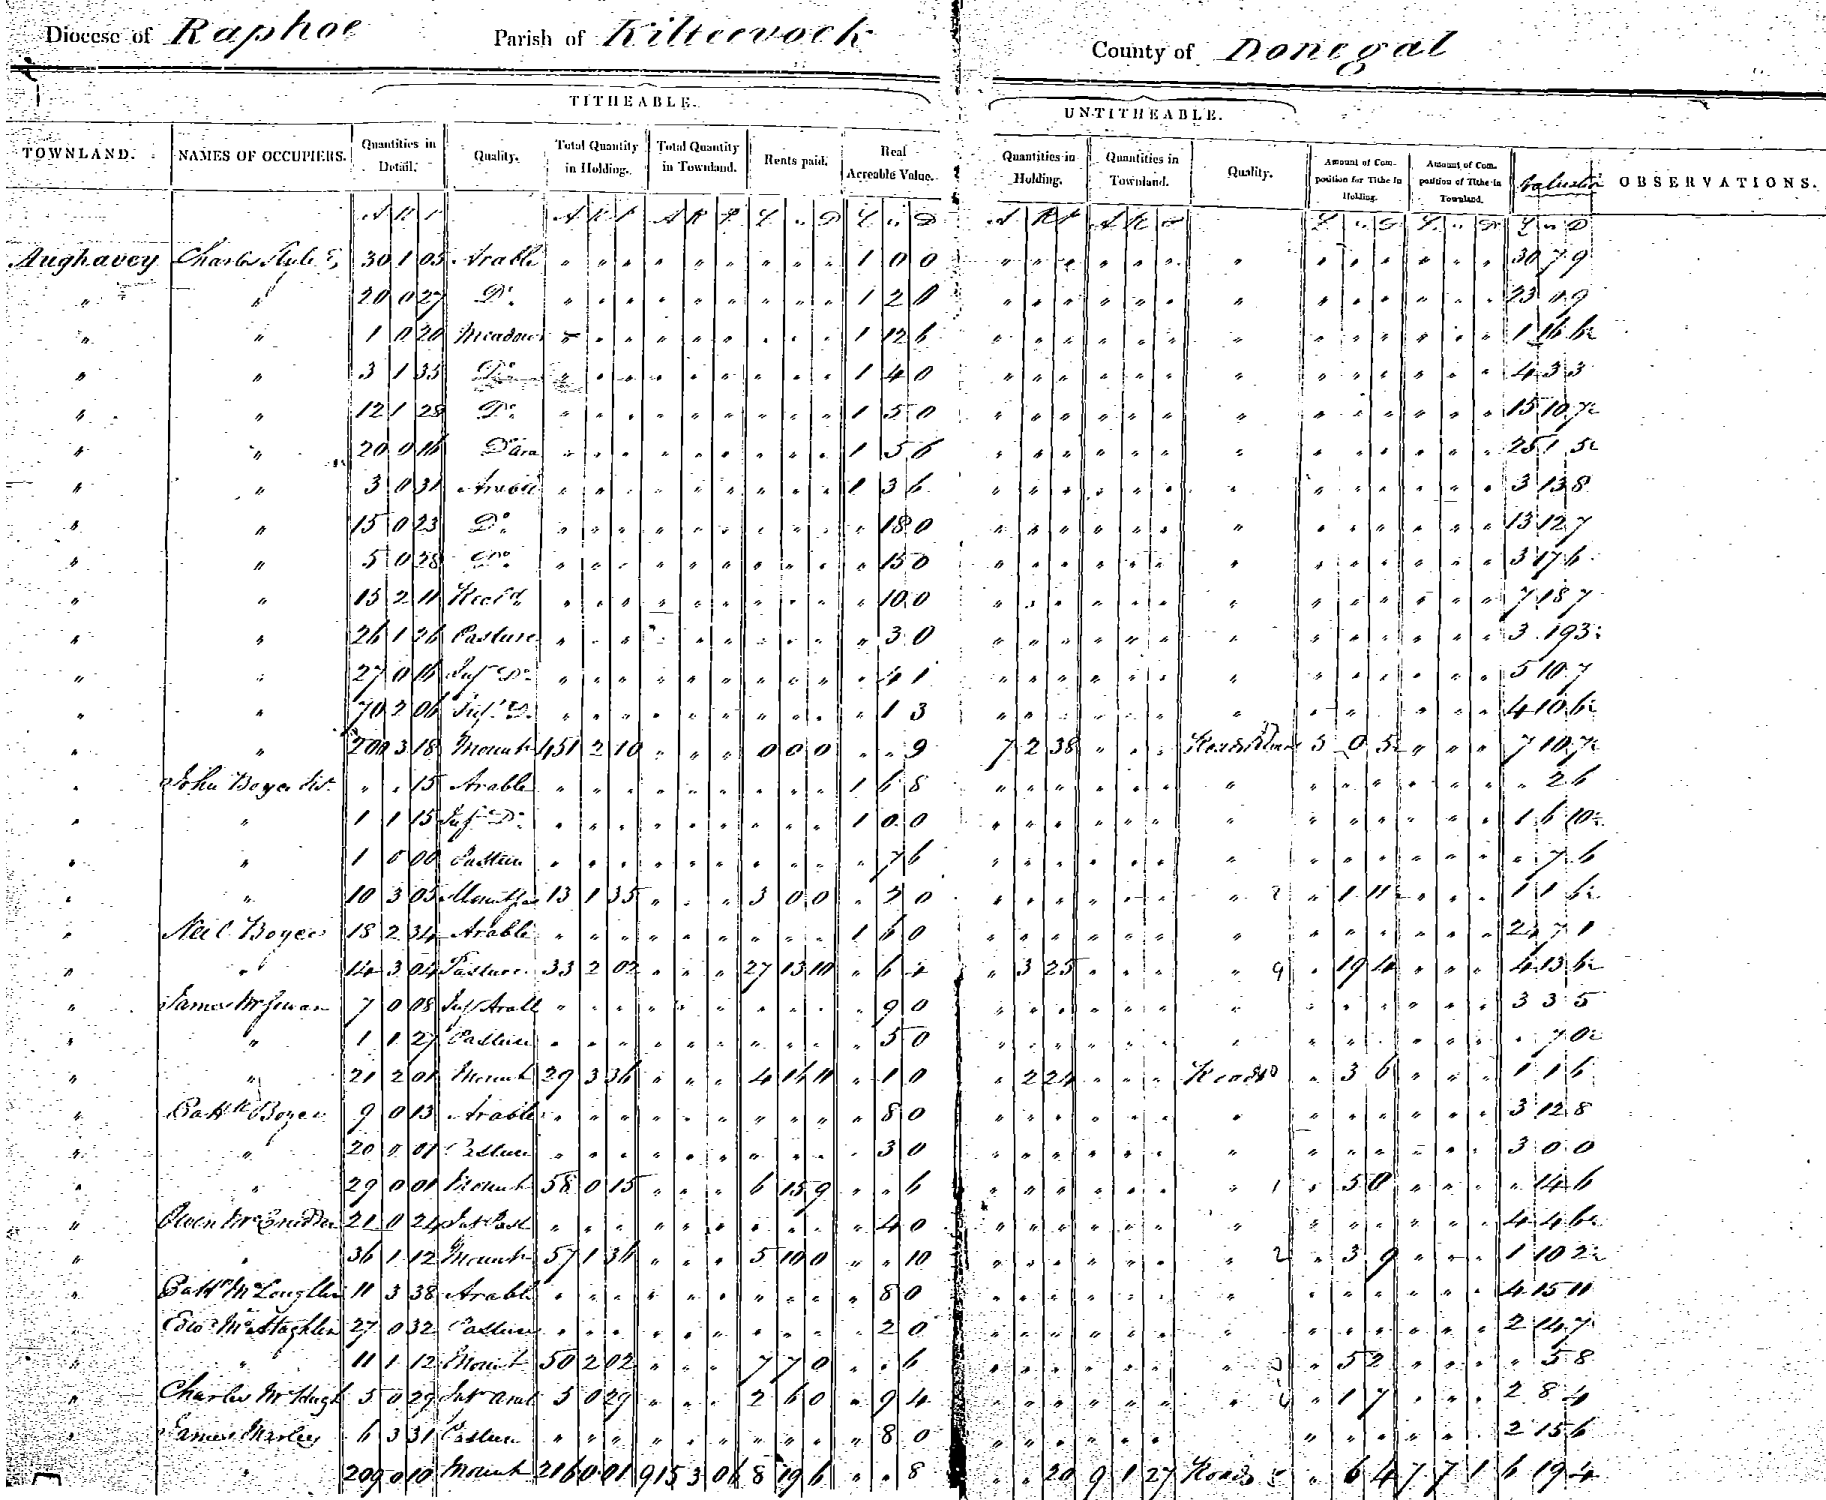 Diocese of Raphoe Parish of Kilteevock County of Donegal
TITHEABLE. UNTITHEABLE.
TOWNLAND. NAMES OF OCCUPIERS. Quantities in Detail. Quality. Total Quantity in Holding. Total Quantity in Townland. Rents paid. Real Acreable Value. Quantities in Holding. Quantities in Townland. Quality. Amount of Composition for Tithe in Holding. Amount of Composition of Tithe in Townland. Valuation OBSERVATIONS.
A R P A R P A R P £ " D £ " D A R P A R P £ " D £ " D £ " D
Aughavey Charles 30 1 05 Arable 1 0 0 30 7 9
" " 20 0 27 Do. 1 2 0 23 " 9
" " 1 0 20 Meadow 1 12 6 1 16 6½
" " 3 1 35 Do. 1 4 0 4 3 3
" " 12 1 28 Do. 1 5 0 15 10 7½
" " 20 0 16 1 5 6 25 1 5½
" " 3 0 31 Arable 1 3 6 3 13 8
" " 15 0 23 Do. " 18 0 13 12 7
" " 5 0 28 Do. " 15 0 3 17 6
" " 15 2 11 " 10 0 7 18 7
" " 26 1 26 Pasture " 3 0 3 19 3½
" " 27 0 16 Inf Do. " 4 1 5 10 7
" " 70 2 06 Inf. D. " 1 3 4 10 6½
" " 200 3 18 Mount 451 2 10 0 0 0 " " 9 7 2 38 5 0 5½ 7 10 7½
" John Boyce " " 15 Arable 1 6 8 " 2 6
" " 1 1 15 Inf Do. 1 0 0 1 6 10½
" " 1 0 00 Pasture " 7 6 " 7 6
" " 10 3 05 13 1 35 3 0 0 " 2 0 2 " 1 11½ 1 1 6½
" Neil Boyce 18 2 34 Arable 1 6 0 24 7 1
" " 14 3 04 Pasture 33 2 02 27 13 10 " 6 4 " 3 25 " 9 " 19 4 4 13 6½
" James McGowan 7 0 08 Inf Arabl " 9 0 3 3 5
" " 1 1 27 Pasture " 5 0 " 7 0½
" " 21 2 01 Mount 29 3 36 4 14 11 " 1 0 " 2 24 Roads " 3 6 1 1 6
" Pattk Boyce 9 0 13 Arable " 8 0 3 12 8
" " 20 0 01 Pasture " 3 0 3 0 0
" " 29 0 01 Mount 58 0 15 6 15 9 " " 6 1 " 5 0 " 14 6
" Owen 21 0 24 Inf Past " 4 0 4 4 6½
" " 36 1 12 Mount 57 1 36 5 10 0 " " 10 2 " 3 9 1 10 2½
" Pattk McLoughlin 11 3 38 Arabl " 8 0 4 15 11
" 27 0 32 Pasture " 2 0 2 14 7
" " 11 1 12 Mount 50 2 02 7 7 0 " " 6 3 " 5 2 " 5 8
" Charles McHugh 5 0 29 Inf Arab 5 0 29 2 6 0 " 9 4 " 1 7 2 8 4
" James Marley 6 3 31 Pasture " 8 0 2 15 6
" 209 0 10 Mount 216 0 01 915 3 06 8 19 6 " " 8 " " 20 9 1 27 Roads " 6 4 7 7 1 6 19 4